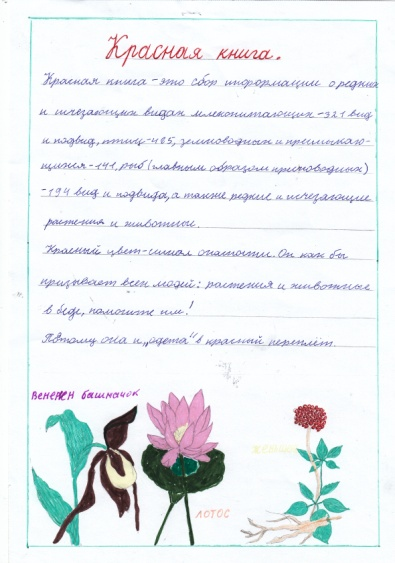 Красная книга.
Красная книга - это сбор информации о редких
и исчезающих видах млекопитающих - 321 вид
и подвид, птиц - 485, земноводных и пресмыкаю-
щихся - 141, рыб (главным образом пресноводных)
- 194 вид и подвида, а также редкие и исчезающие
растения и животные.
Красный цвет - сигнал опасности. Он как бы
призывает всех людей: растения и животные
в беде, помогите им!
Поэтому она и "одета" в красный переплёт.
Венерен башмачок
женьшень
лотос